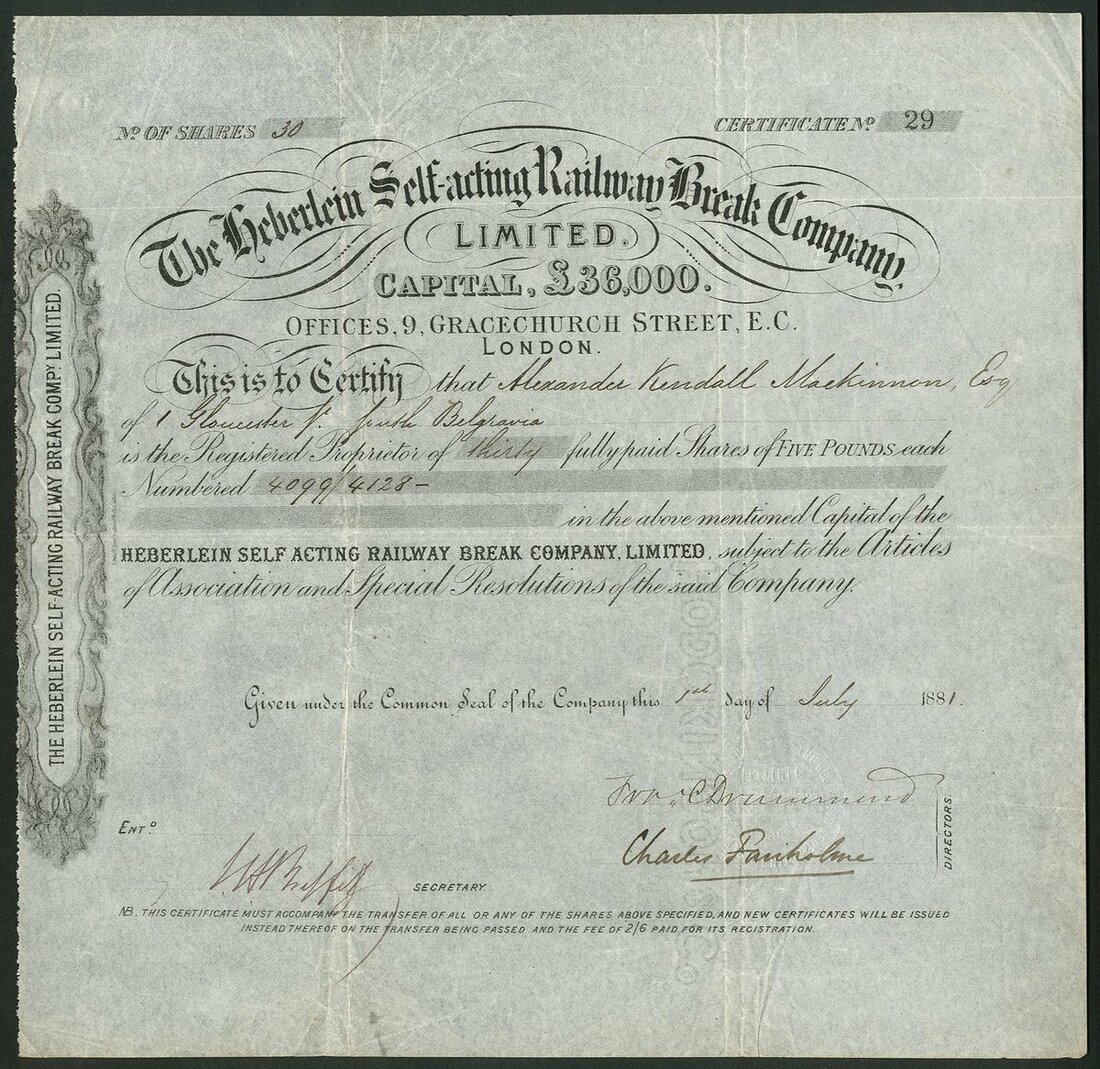 No OF SHARES 30
CERTIFICATE No 29
The Heberlein Self-acting Railway Break Company
LIMITED.
CAPITAL, £36,000.
OFFICES, 9, GRACECHURCH STREET, E.C.
LONDON.
This is to Certify that Alexander Kendall Mackinnon, Esq
of 1 Gloucester St. South Belgravia
is the Registered Proprietor of thirty fully paid Shares of FIVE POUNDS each
Numbered 4099/4128 –
in the above mentioned Capital of the
HEBERLEIN SELF ACTING RAILWAY BREAK COMPANY, LIMITED, subject to the Articles
of Association and Special Resolutions of the said Company.
Given under the Common Seal of the Company this 1st day of July 1881.
Drummond
Charles Fairholme
DIRECTORS
ENTD
SECRETARY
NB. THIS CERTIFICATE MUST ACCOMPANY THE TRANSFER OF ALL OR ANY OF THE SHARES ABOVE SPECIFIED, AND NEW CERTIFICATES WILL BE ISSUED
INSTEAD THEREOF ON THE TRANSFER BEING PASSED AND THE FEE OF 2/6 PAID FOR ITS REGISTRATION.
THE HEBERLEIN SELF-ACTING RAILWAY BREAK COMPY LIMITED.